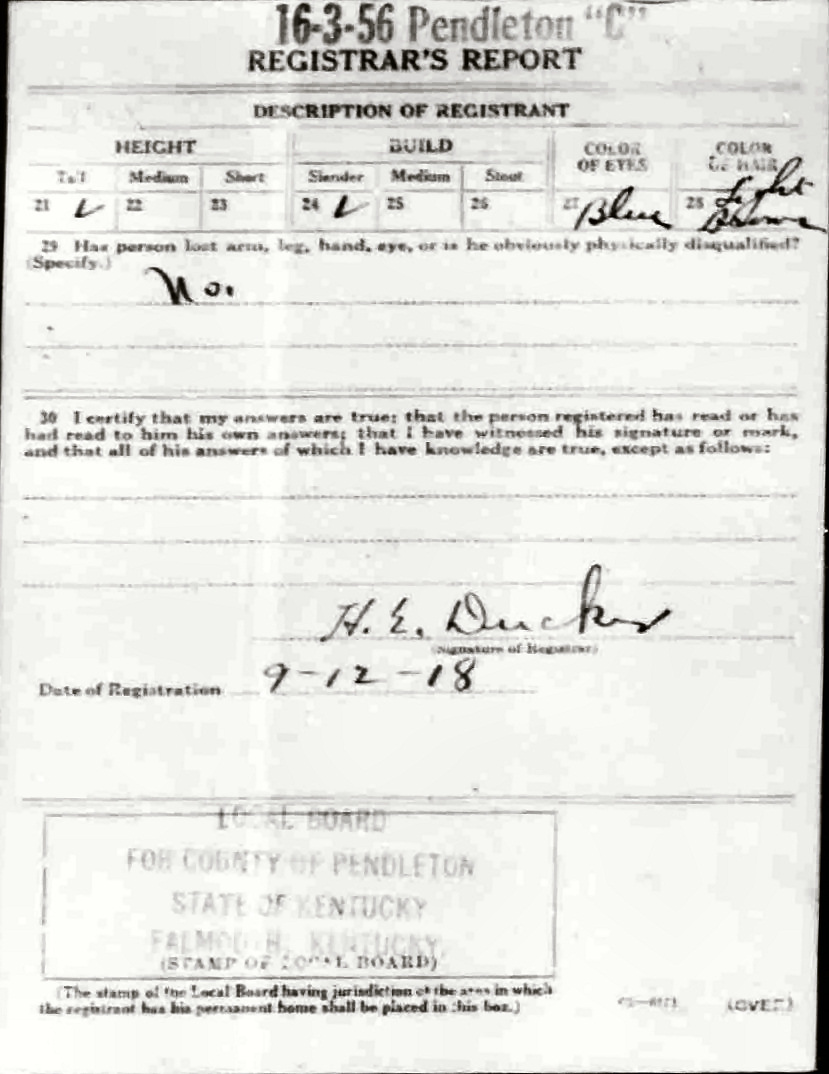 16-3-56 Pendleton "C"
REGISTRAR'S REPORT
DESCRIPTION OF REGISTRANT
HEIGHT BUILD COLOR OF EYES COLOR OF HAIR
Tall Medium Short Slender Medium Stout
21 ✓ 22 23 24 ✓ 25 26 27 Blue 28 Light Brown
29 Has person lost arm, leg, hand, eye, or is he obviously physically disqualified?
(Specify.)
No.
30 I certify that my answers are true; that the person registered has read or has
had read to him his own answers; that I have witnessed his signature or mark,
and that all of his answers of which I have knowledge are true, except as follows:
H. E. Ducker
(Signature of Registrar)
Date of Registration 9-12-18
LOCAL BOARD
FOR COUNTY OF PENDLETON
STATE OF KENTUCKY
FALMOUTH, KENTUCKY
(STAMP OF LOCAL BOARD)
(The stamp of the Local Board having jurisdiction of the area in which
the registrant has his permanent home shall be placed in this box.)
(OVER)